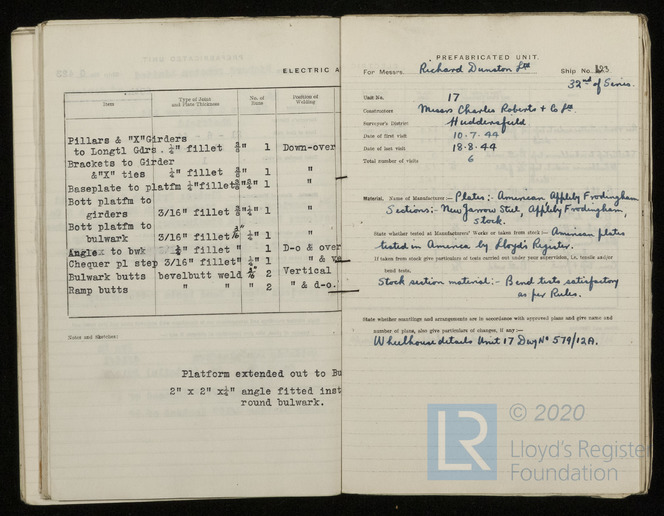 ELECTRIC A
Item Type of Joint and Plate Thickness No. of Runs Position of Welding
Pillars & "X"Girders
to Longtl Gdrs. ¼" fillet 1 Down-over
Brackets to Girder
&"X" ties ¼" fillet 1 "
Baseplate to platfm ¼"fillet 1 "
Bott platfm to
girders 3/16" fillet 1 "
Bott platfm to
bulwark 3/16" fillet 1 "
Angle to bwk fillet 1 D-o & over
Chequer pl step 3/16" fillet 1 " &
Bulwark butts bevelbutt weld 2 Vertical
Ramp butts " " 2 " & d-o.
Notes and Sketches:
Platform extended out to Bu
2" x 2" x¼" angle fitted inst
round bulwark.
PREFABRICATED UNIT.
For Messrs. Richard Dunston Ltd Ship No. 623
32nd of Series.
Unit No. 17
Constructors Messrs Charles Roberts & Co Ltd.
Surveyor's District Huddersfield
Date of first visit 10.7.44
Date of last visit 18.8.44
Total number of visits 6
Material. Name of Manufacturer:- Plates:- American Appleby Frodingham
Sections:- New Jarrow Steel, Appleby Frodingham,
Stock.
State whether tested at Manufacturers' Works or taken from stock:- American plates
tested in America by Lloyd's Register.
If taken from stock give particulars of tests carried out under your supervision, i.e. tensile and/or
bend tests.
Stock section material:- Bend tests satisfactory
as per Rules.
State whether scantlings and arrangements are in accordance with approved plans and give name and
number of plans, also give particulars of changes, if any:-
Wheelhouse details Unit 17 Dwg No 579/12A.
LR © 2020
Lloyd's Register
Foundation